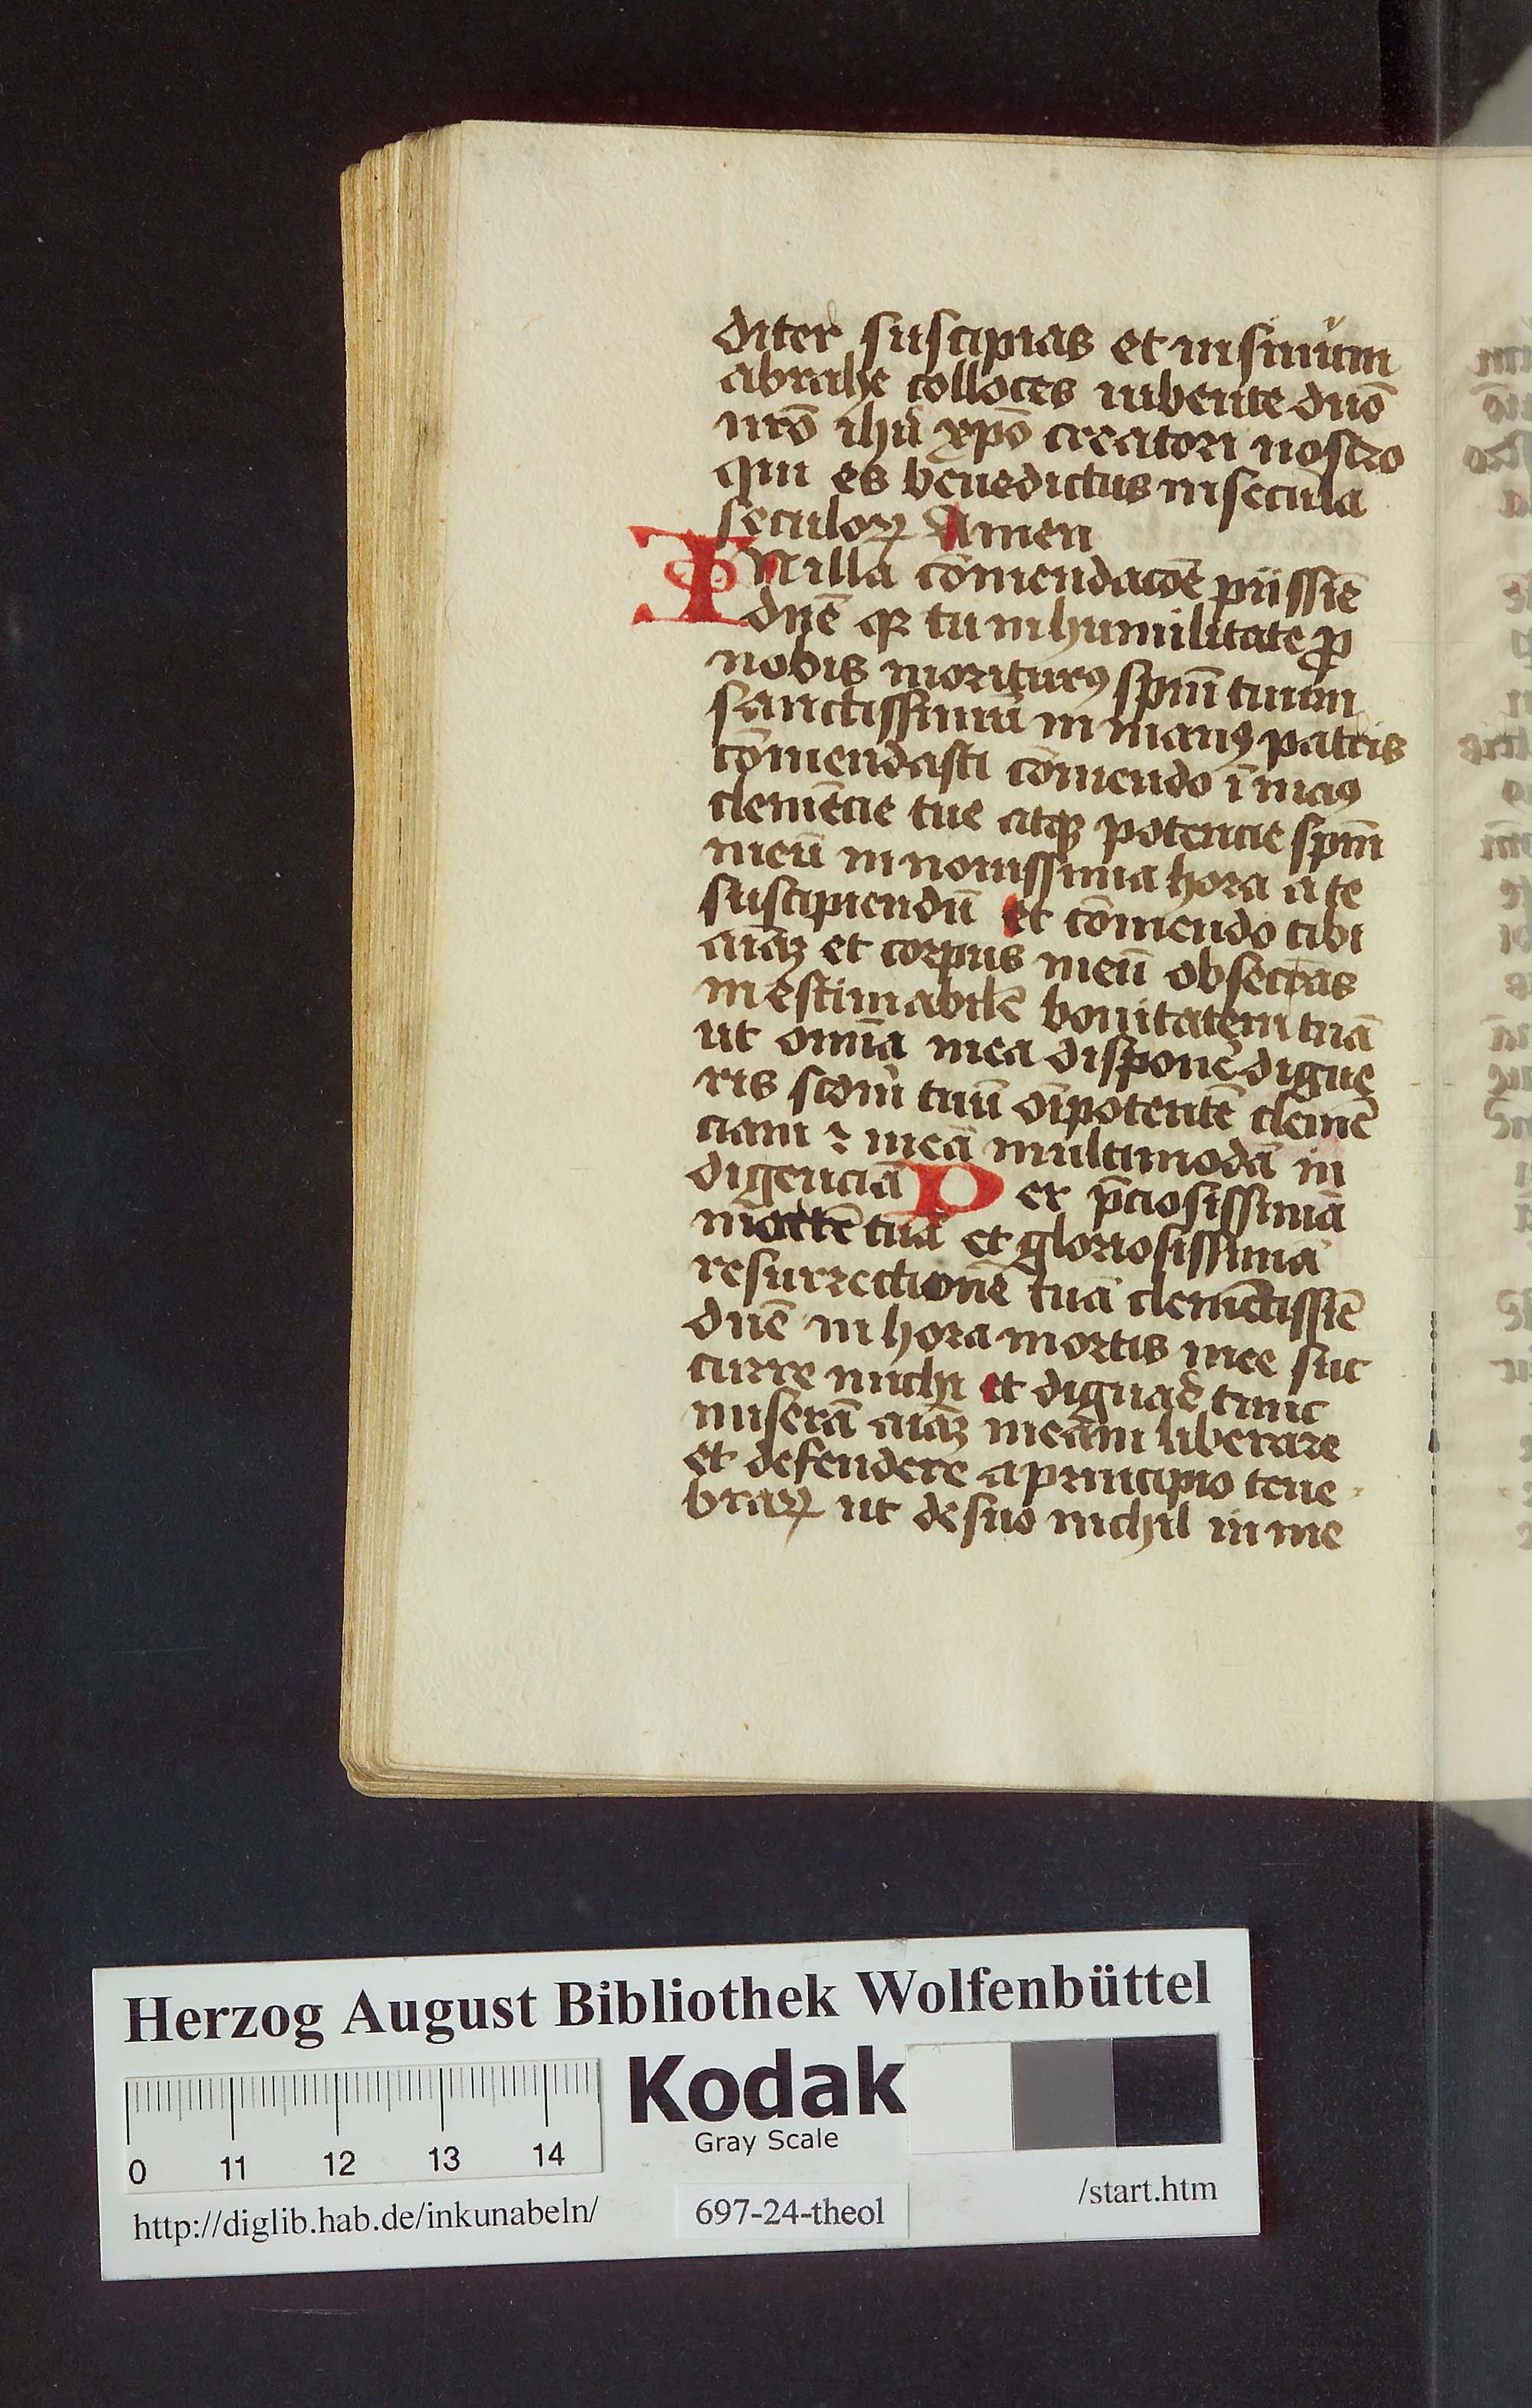 diter suscipias et in sinum
abrahe colloces iubente dn̄o
nr̄o ihū xp̄o creatori nostro
qui es benedictus in secula
seculoꝝ Amen
IN illa cōmendacōe piissiē
dn̄e qꝛ tu in humilitate ꝓ
nobis moriturꝰ spm̄ tuum
sanctissimū in manꝰ patris
cōmendasti cōmendo ī maꝰ
clemēcie tue atqꝫ potencie spm̄
meū in nouissima hora a te
suscipiendū et cōmendo tibi
aīaꝫ et corpus meū obsecrās
inestimabilē bonitatem tuā
ut omīa mea disponē digne
ris scdm̄ tuū oīpotentē clemē
ciam ⁊ meā multimodā in
digenciā Per p̄ciosissimā
mortē tuā et gloriosissimā
resurrectionē tuā clemētissiē
dn̄e in hora mortis mee suc
curre michi et dignaē tunc
miserā aīaꝫ meam liberare
et defendere a principio tene
braꝝ ut de suo nichil in me
Herzog August Bibliothek Wolfenbüttel
0 11 12 13 14
Kodak
Gray Scale
http://diglib.hab.de/inkunabeln/ 697-24-theol /start.htm